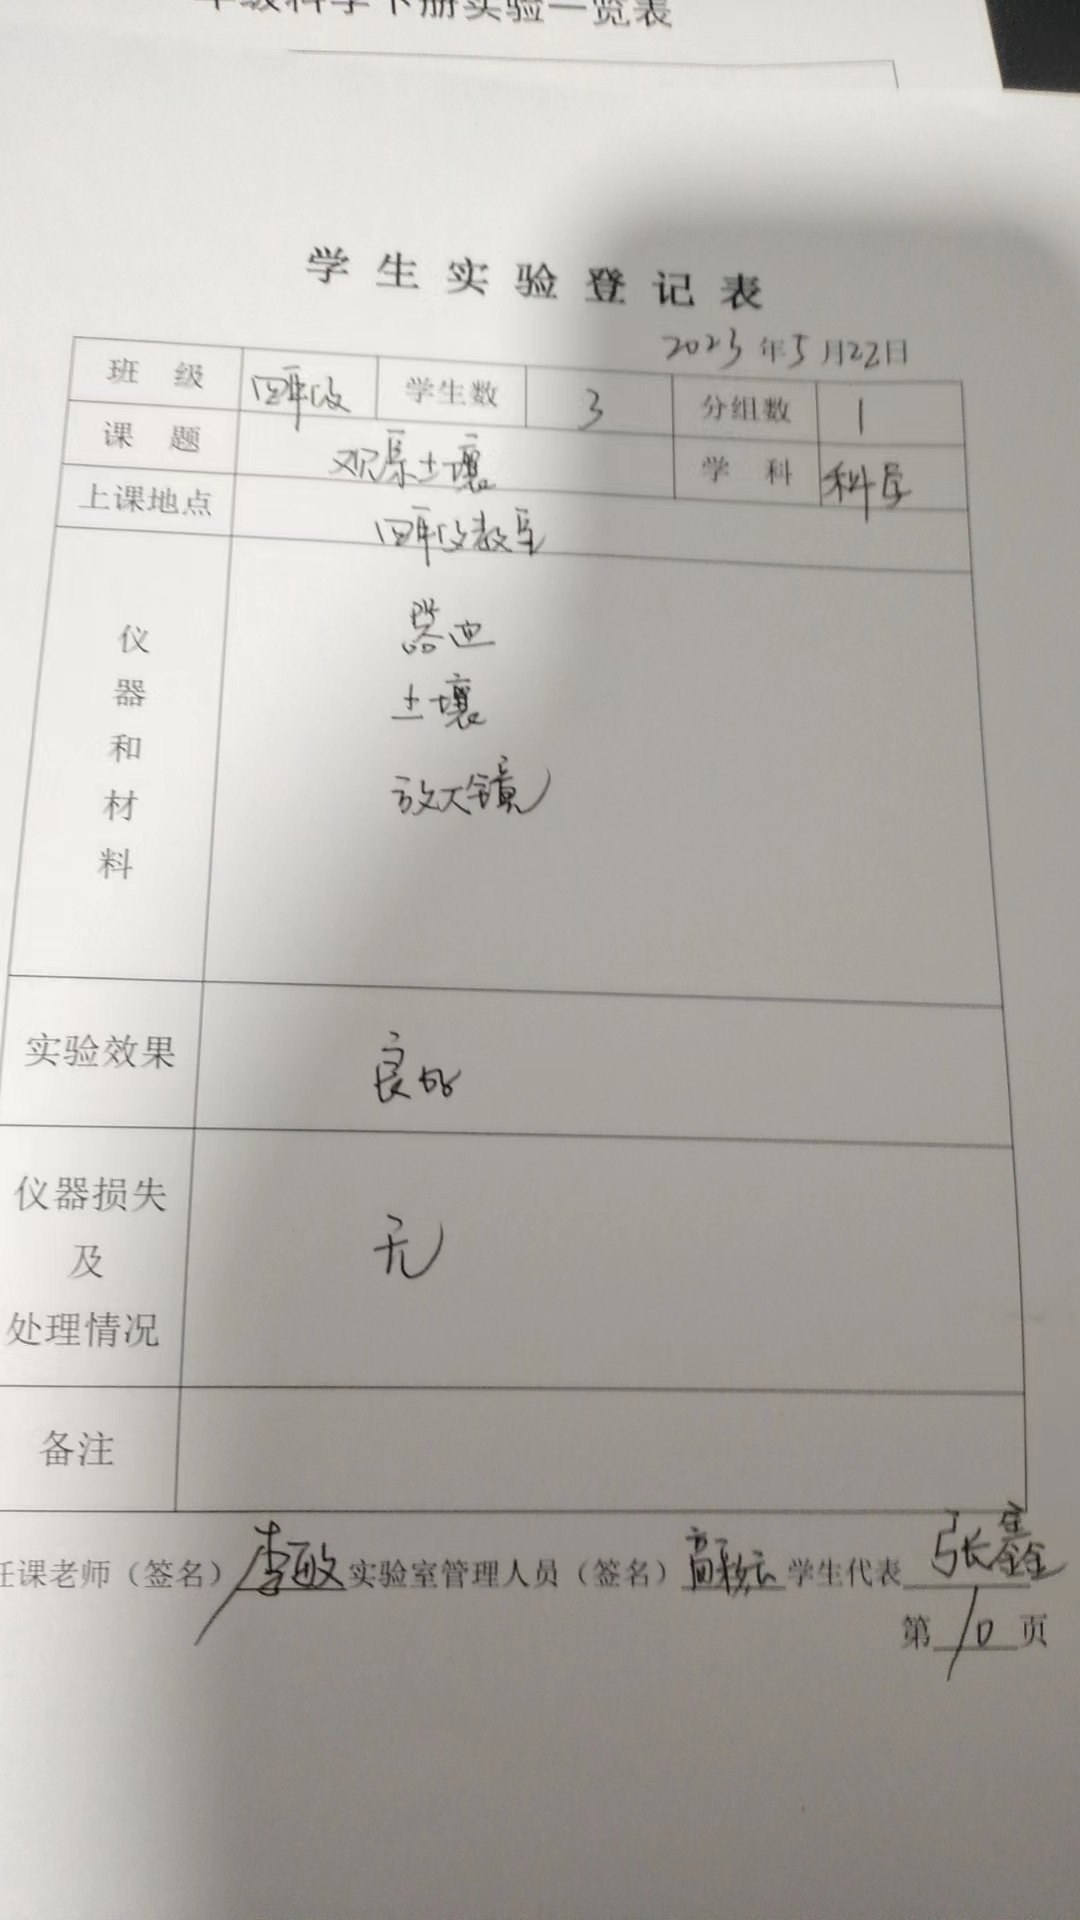 年级科学下册实验一览表
学生实验登记表
2023年5月22日
班 级 四年级 学生数 3 分组数 1
课 题 观察土壤 学 科 科学
上课地点 四年级教室
仪器和材料
器皿
土壤
放大镜
实验效果 良好
仪器损失
及
处理情况
无
备注
任课老师（签名）李敏 实验室管理人员（签名） 学生代表 张鑫
第 10 页